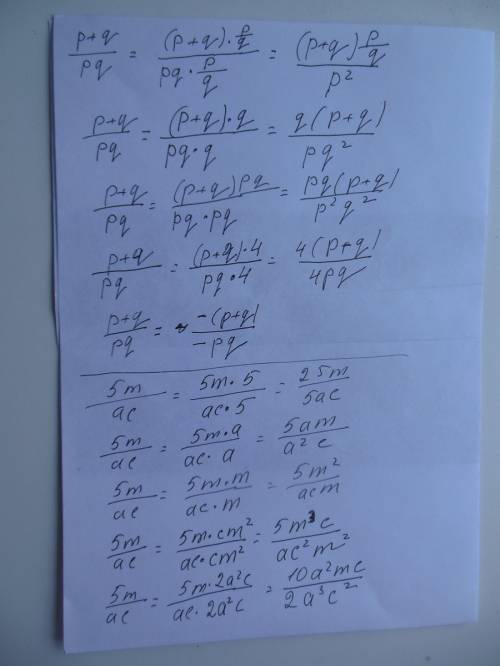 p+q/pq = (p+q)·p/q / pq·p/q = (p+q)p/q / p²
p+q/pq = (p+q)·q / pq·q = q(p+q) / pq²
p+q/pq = (p+q)pq / pq·pq = pq(p+q) / p²q²
p+q/pq = (p+q)·4 / pq·4 = 4(p+q) / 4pq
p+q/pq = -(p+q) / -pq
5m/ac = 5m·5 / ac·5 = 25m / 5ac
5m/ac = 5m·a / ac·a = 5am / a²c
5m/ac = 5m·m / ac·m = 5m² / acm
5m/ac = 5m·cm² / ac·cm² = 5m³c / ac²m²
5m/ac = 5m·2a²c / ac·2a²c = 10a²mc / 2a³c²